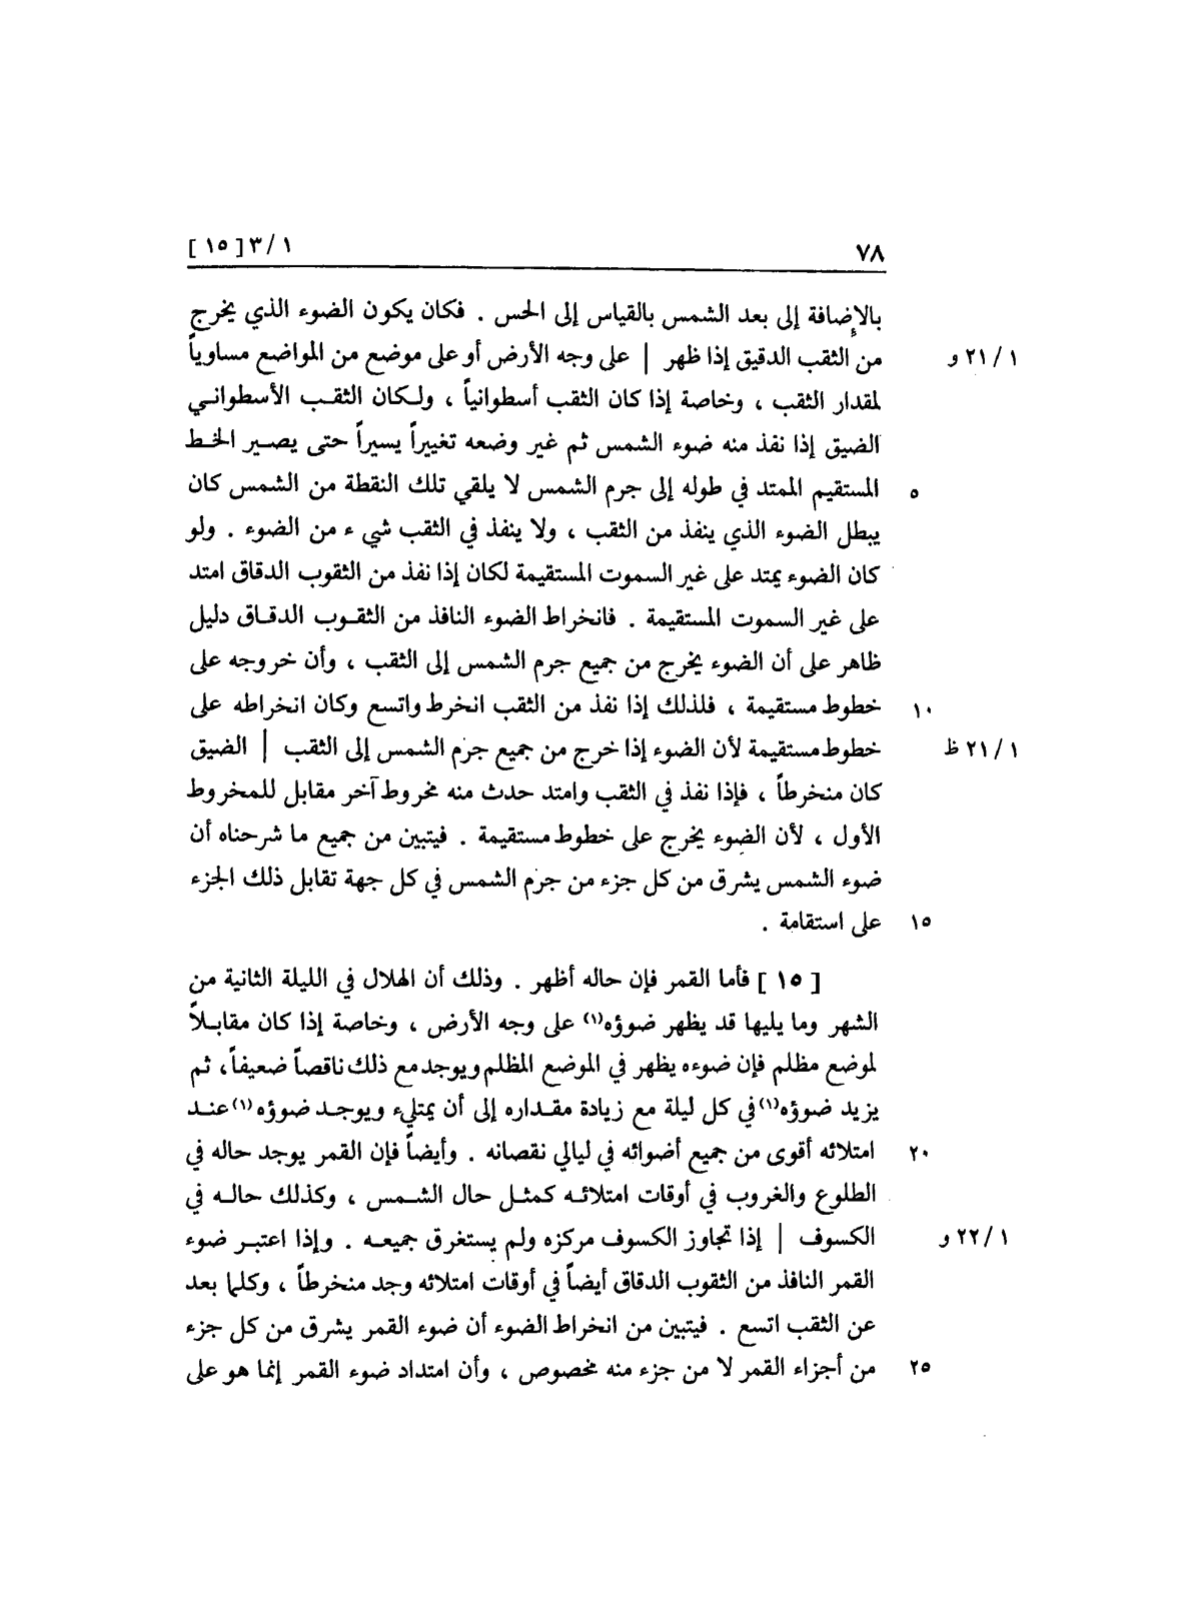 ٧٨ ١ /٣[ ١٥ ]
بالإضافة إلى بعد الشمس بالقياس إلى الحس . فكان يكون الضوء الذي يخرج
١ /٢١ و من الثقب الدقيق إذا ظهر | على وجه الأرض أو على موضع من المواضع مساوياً
لمقدار الثقب ، وخاصة إذا كان الثقب أسطوانياً ، ولكان الثقب الأسطواني
الضيق إذا نفذ منه ضوء الشمس ثم غير وضعه تغييراً يسيراً حتى يصير الخط
٥ المستقيم الممتد في طوله إلى جرم الشمس لا يلقي تلك النقطة من الشمس كان
يبطل الضوء الذي ينفذ من الثقب ، ولا ينفذ في الثقب شيء من الضوء . ولو
كان الضوء يمتد على غير السموت المستقيمة لكان إذا نفذ من الثقوب الدقاق امتد
على غير السموت المستقيمة . فانخراط الضوء النافذ من الثقوب الدقاق دليل
ظاهر على أن الضوء يخرج من جميع جرم الشمس إلى الثقب ، وأن خروجه على
١٠ خطوط مستقيمة ، فلذلك إذا نفذ من الثقب انخرط واتسع وكان انخراطه على
١ /٢١ ظ خطوط مستقيمة لأن الضوء إذا خرج من جميع جرم الشمس إلى الثقب | الضيق
كان منخرطاً ، فإذا نفذ في الثقب وامتد حدث منه مخروط آخر مقابل للمخروط
الأول ، لأن الضوء يخرج على خطوط مستقيمة . فيتبين من جميع ما شرحناه أن
ضوء الشمس يشرق من كل جزء من جرم الشمس في كل جهة تقابل ذلك الجزء
١٥ على استقامة .
[ ١٥ ] فأما القمر فإن حاله أظهر . وذلك أن الهلال في الليلة الثانية من
الشهر وما يليها قد يظهر ضوؤه(١) على وجه الأرض ، وخاصة إذا كان مقابلاً
لموضع مظلم فإن ضوءه يظهر في الموضع المظلم ويوجد مع ذلك ناقصاً ضعيفاً ، ثم
يزيد ضوؤه(١) في كل ليلة مع زيادة مقداره إلى أن يمتليء ويوجد ضوؤه(١) عند
٢٠ امتلائه أقوى من جميع أضوائه في ليالي نقصانه . وأيضاً فإن القمر يوجد حاله في
الطلوع والغروب في أوقات امتلائه كمثل حال الشمس ، وكذلك حاله في
١ /٢٢ و الكسوف | إذا تجاوز الكسوف مركزه ولم يستغرق جميعه . وإذا اعتبر ضوء
القمر النافذ من الثقوب الدقاق أيضاً في أوقات امتلائه وجد منخرطاً ، وكلما بعد
عن الثقب اتسع . فيتبين من انخراط الضوء أن ضوء القمر يشرق من كل جزء
٢٥ من أجزاء القمر لا من جزء منه مخصوص ، وأن امتداد ضوء القمر إنما هو على